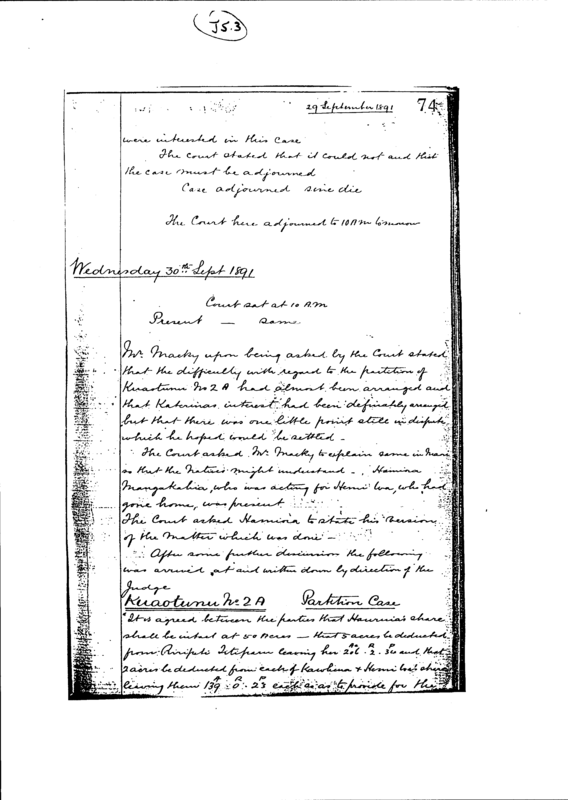 J5.3
29 September 1891 74
were interested in this case
The court stated that it could not and that
the case must be adjourned
Case adjourned sine die
The Court here adjourned to 10 AM tomorrow
Wednesday 30th Sept 1891
Court sat at 10 AM
Present — same
Mr. Macky upon being asked by the Court stated
that the difficulty with regard to the partition of
Kuaotunu No 2A had almost been arranged and
that Katerinas interest had been definitely arranged
but that there was one little point still in dispute
which he hoped would be settled -
The Court asked Mr. Macky to explain same in Maori
so that the Natives might understand - Hamiora
Mangakahia, who was acting for Hemi Wa, who had
gone home, was present
The Court asked Hamiora to state his version
of the Matter which was done -
After some further discussion the following
was arrived at and written down by direction of the
Judge
Kuaotunu No. 2A Partition Case
"It is agreed between the parties that share
shall be intact at 50 Acres — that 5 acres be deducted
from leaving her 226A. 2R. 30P and that
2 acres be deducted from each of + Hemi share
leaving them 139A. 0R. 23P each so as to provide for the